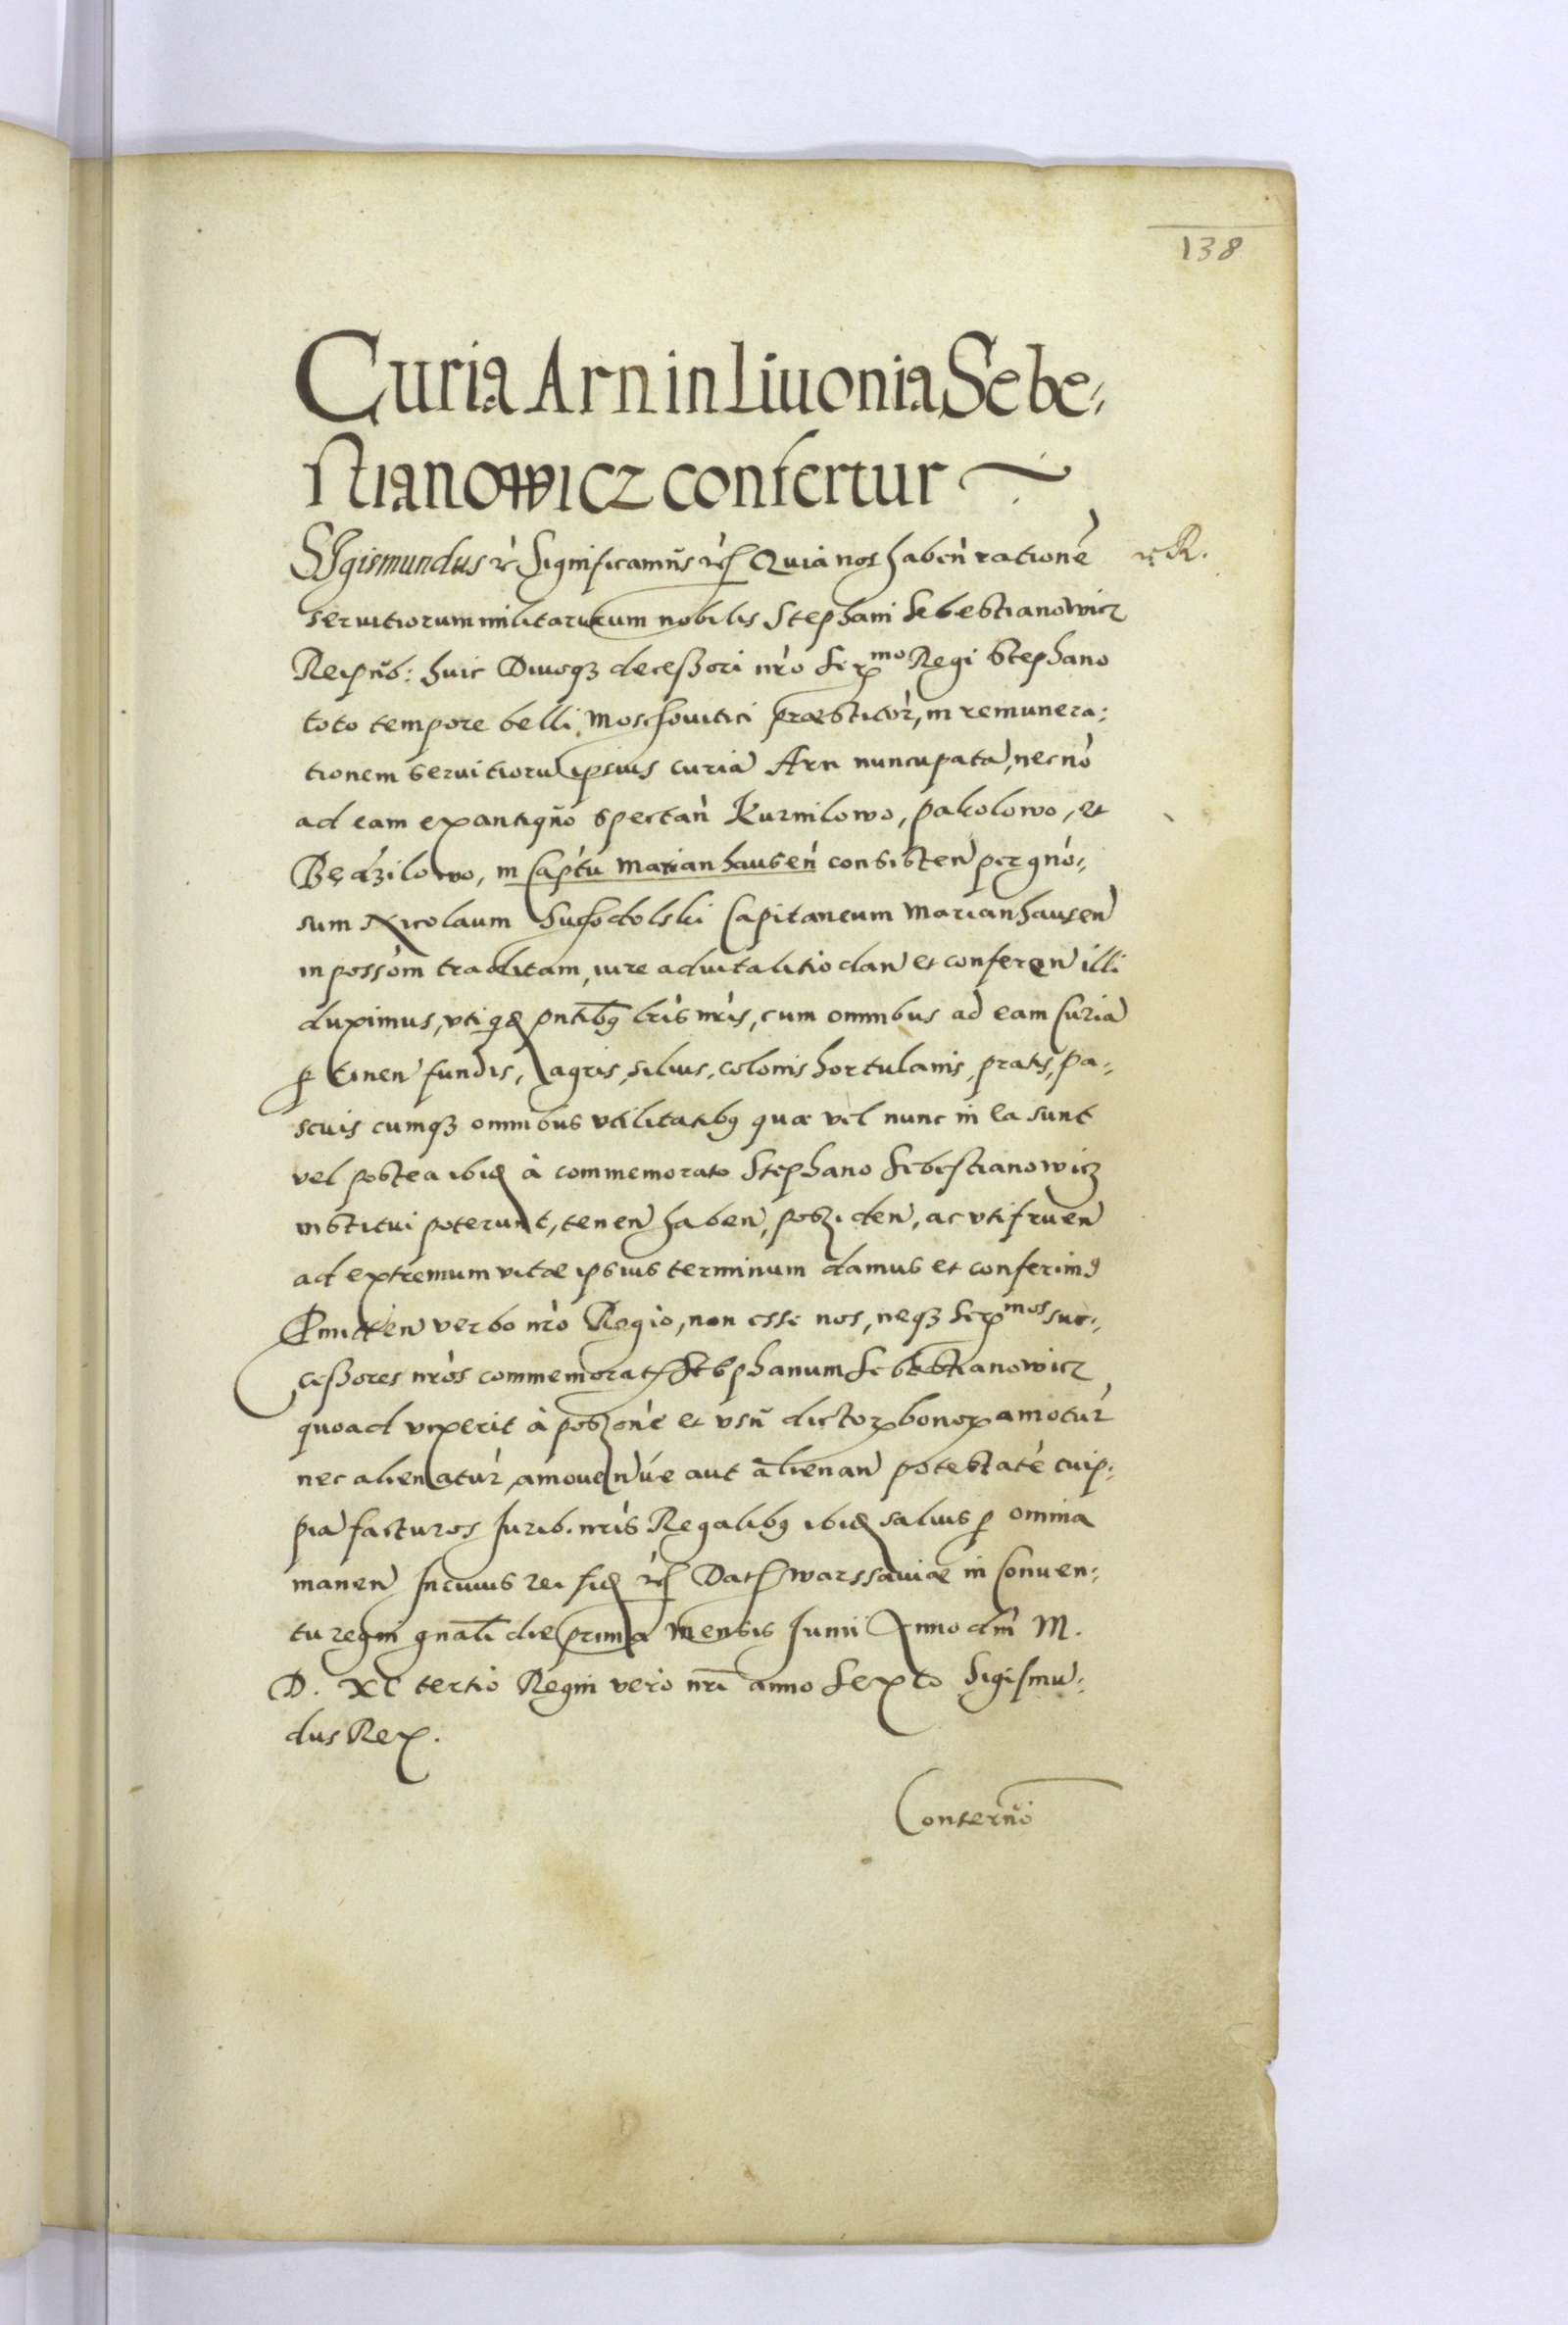 138
Curia Arn in Liuonia Sebe,
stianowicz confertur
Sigismundus rc̀ Significamũs rc̀ Quia nos habeǹ rationẽ rR.
seruitiorum militarium nobilis Stephani Sebestianowicz
Reipub: huic Diuoqз deceßori nr̀o Ser^mo Regi Stephano
toto tempore belli Moschouitici præstitor̀, in remunera:
tionem seruitioru ipsius curia Arn nuncupata, nec nò
ad eam ex antiquo spectaǹ Kurnilowo, pakolowo, et
Będzilowo, in Captu Marianhauseǹ consisteǹ per gnò,
sum Nicolaum Suchodolski Capitaneum Marianhausen
in possòm traditam, iure aduitalitio dan et conferen illi
duximus, vti qд pntibꝯ lrìs nrìs, cum omnibus ad eam curia
ꝑtinen fundis, agris, siluis, colonis hortulanis, pratis, pa,
scuis cumqз omnibus vtilitatibꝯ quæ vel nunc in ea sunt
vel postea ibid à commemorato Stephano Sebestianowicz
institui poterunt, tenen haben, poßiden, ac vtifruen
ad extremum vitæ ipsius terminum damus et conferimꝯ
Pmitten verbo nr̀o Regio, non esse nos, neqз Ser^mos suc,
ceßores nròs commemorat Stephanum Sebestianowicz
quoad vixerit à poßonè et vsũ dictoꝝ bonoꝝ amotur̀
nec alienatur̀, amouenùe aut alienan potestatè cuip,
pia facturos Iurib. nrìs Regalibꝯ ibid saluis ꝑ omnia
manen In cuius rei fid rc̀ Dat Warssauiæ in Conuen:
tu regni gnali die prima mensis Iunii Anno dni M.
D. XC tertio Regni vero nri anno Sexto Sigismu,
dus Rex.